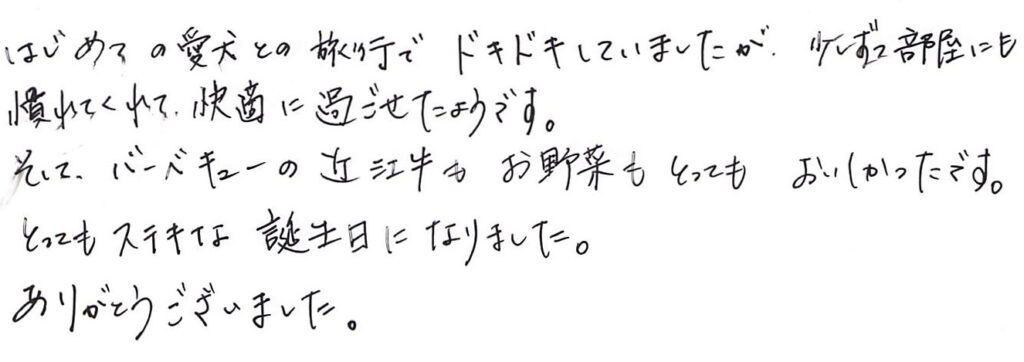 はじめての愛犬との旅行でドキドキしていましたが、少しずつ部屋にも
慣れてくれて、快適に過ごせたようです。
そして、バーベキューの近江牛もお野菜もとってもおいしかったです。
とってもステキな誕生日になりました。
ありがとうございました。